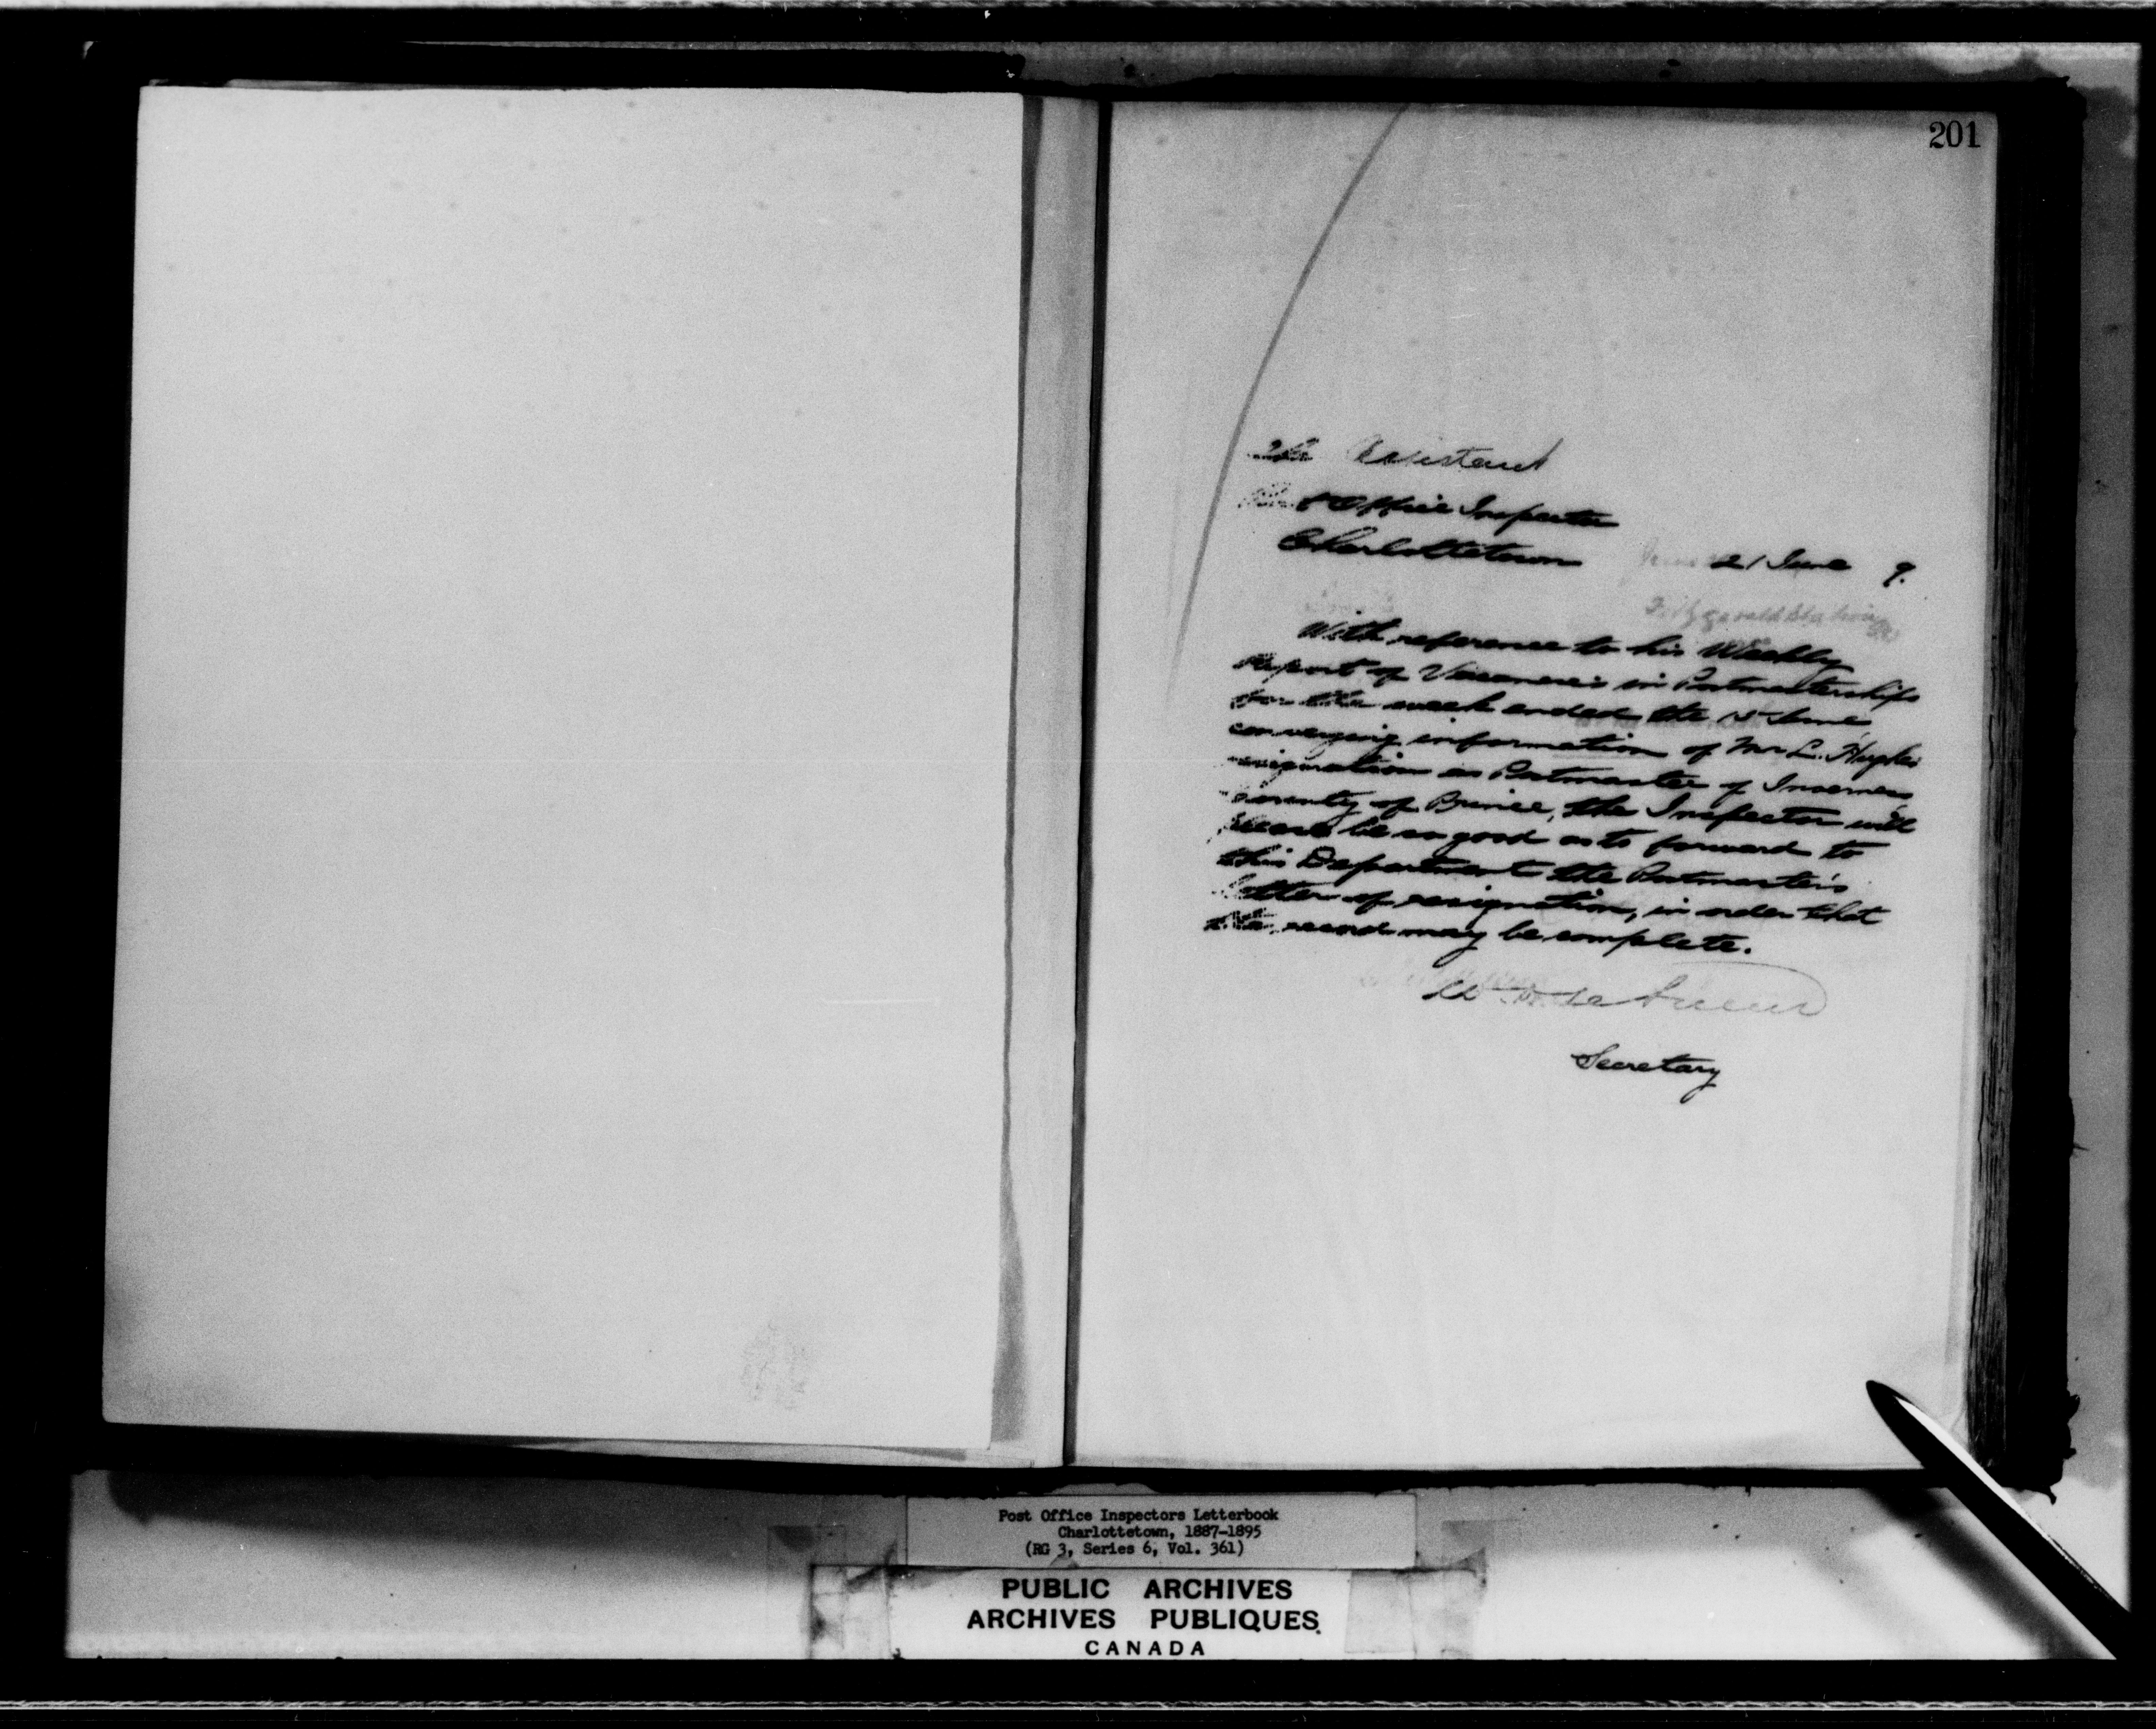 201
The Assistant
Post Office Inspector
Charlottetown
21 June 9.
Fitzgerald Station
With reference to his Weekly
Report of Vacancies in Postmasterships
for the week ended the 15 June
conveying information of Mr L. Hughes
resignation as Postmaster of Inverness
County of Prince, the Inspector will
please be so good as to forward to
this Department the Postmaster's
letter of resignation, in order that
the record may be complete.
Secretary
Post Office Inspectors Letterbook
Charlottetown, 1887-1895
(RG 3, Series 6, Vol. 361)
PUBLIC ARCHIVES
ARCHIVES PUBLIQUES
CANADA